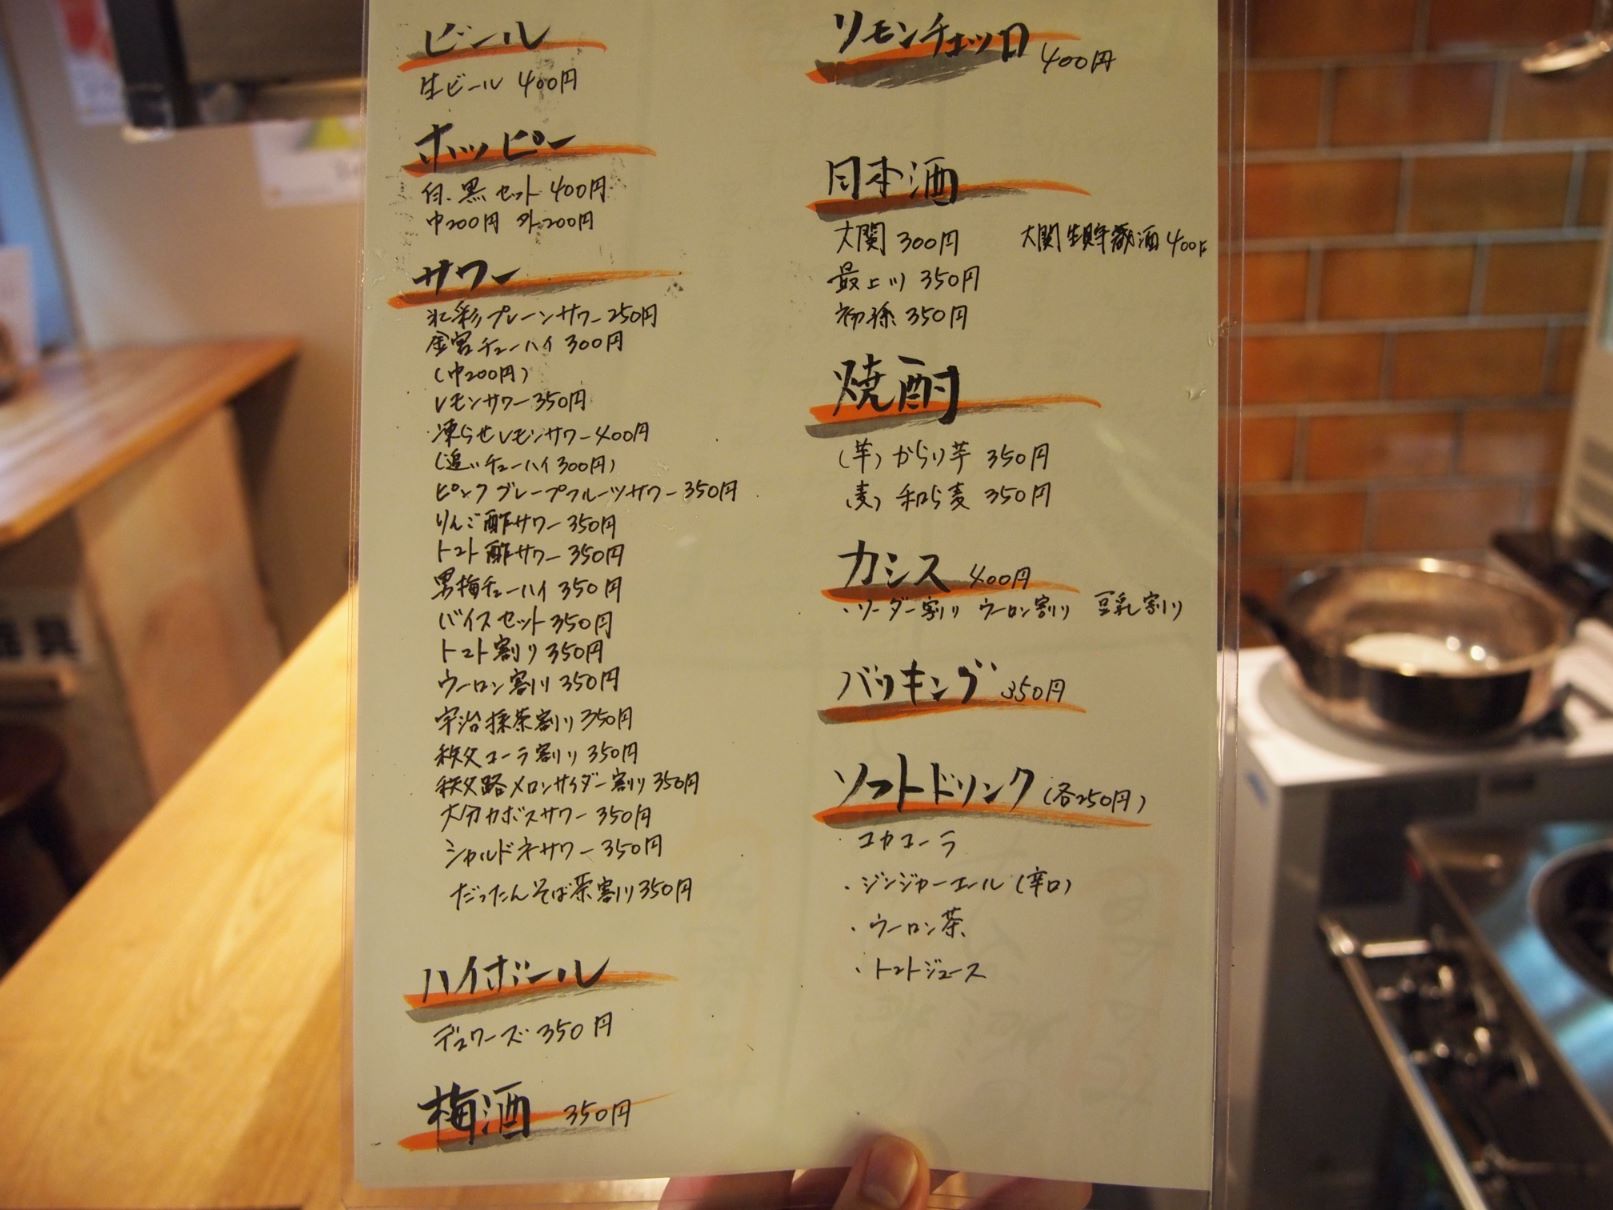 ビール
生ビール 400円
ホッピー
白.黒 セット 400円
中200円 外200円
サワー
氷彩プレーンサワー250円
金宮チューハイ 300円
(中200円)
レモンサワー350円
凍らせレモンサワー400円
(追いチューハイ300円)
ピンクグレープフルーツサワー350円
りんご酢サワー350円
トマト酢サワー350円
男梅チューハイ350円
バイスセット350円
トマト割り350円
ウーロン割り350円
宇治抹茶割り350円
秩父コーラ割り350円
秩父路メロンサイダー割り350円
大分カボスサワー350円
シャルドネサワー350円
だったんそば茶割り350円
ハイボール
デュワーズ350円
梅酒 350円
リモンチェッロ 400円
日本酒
大関 300円 大関生貯蔵酒400円
最上川 350円
初孫 350円
焼酎
(芋)からり芋 350円
(麦)和ら麦 350円
カシス 400円
・ソーダー割り ウーロン割り 豆乳割り
バッキング 350円
ソフトドリンク(各250円)
コカコーラ
・ジンジャーエール(辛口)
・ウーロン茶
・トマトジュース